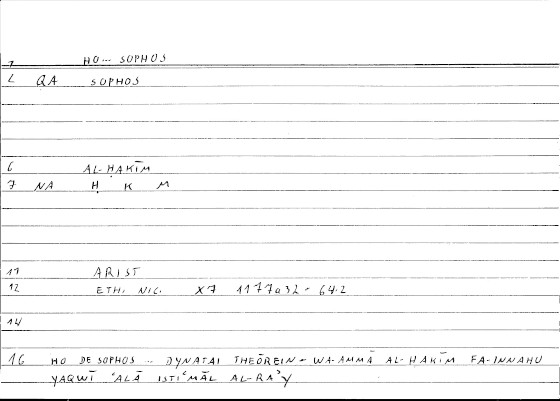 1 HO... SOPHOS
2 QA SOPHOS
6 AL-ḤAKĪM
7 NA Ḥ K M
11 ARIST
12 ETH. NIC. X7 1177a32 - 64.2
14
16 HO DE SOPHOS ... DYNATAI THEŌREIN - WA-AMMĀ AL-ḤAKĪM FA-INNAHU
YAQWĪ ʿALĀ ISTIʿMĀL AL-RAʾY